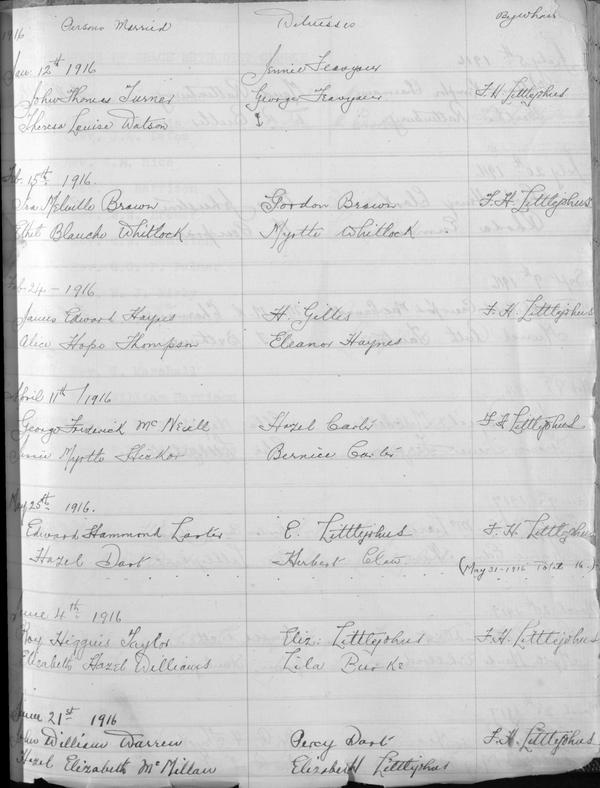 1916 Persons Married Witnesses By whom
Jan. 12th 1916 Jennie
John Thomas Turner George F. H. Littlejohns
Theresa Louise Watson
Feb. 15th 1916.
Melville Brown Gordon Brown F. H. Littlejohns
Blanche Whitlock Myrtle Whitlock
Feb. 24 - 1916
James Edward Haynes H. Gilles F. H. Littlejohns
Alice Hope Thompson Eleanor Haynes
April 11th / 1916
George Frederick McNeill Hazel Carter Littlejohns
Myrtle Bernice Carter
May 25th 1916.
Edward Hammond Larter E. Littlejohns F. H. Littlejohns
Hazel Dart Herbert Claw
(May 31-1916 Total 16.)
June 4th 1916
Roy Higgins Taylor Eliz. Littlejohns F. H. Littlejohns
Elizabeth Hazel Williams Lila Burke
June 21st 1916
John William Warren Percy Dart F. H. Littlejohns
Hazel Elizabeth McMillan Elizabeth Littlejohns